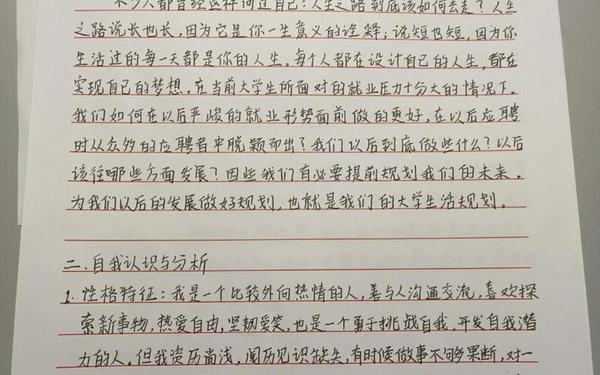 不少人都曾经这样问过自己：人生之路到底该如何去走？人生
之路说长也长，因为它是你一生意义的诠释；说短也短，因为你
生活过的每一天都是你的人生。每个人都在设计自己的人生，都在
实现自己的梦想。在当前大学生所面对的就业压力十分大的情况下。
我们如何在以后严峻的就业形势面前做的更好，在以后应聘
时从众多的应聘者中脱颖而出？我们以后到底做些什么？以后
该往哪些方面发展？因些我们有必要提前规划我们的未来。
为我们以后的发展做好规划，也就是我们的大学生活规划。
二.自我认识与分析
1.性格特征：我是一个比较外向热情的人，善与人沟通交流，喜欢探
索新事物，热爱自由，坚韧爱笑，也是一个勇于挑战自我，开发自我潜
力的人。但我资历尚浅，阅历见识缺失，有时候做事不够果断，对一